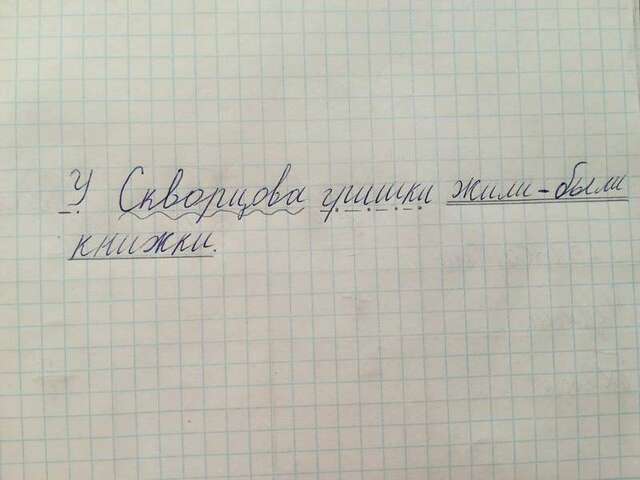 У Скворцова гришки жили-были
книжки.